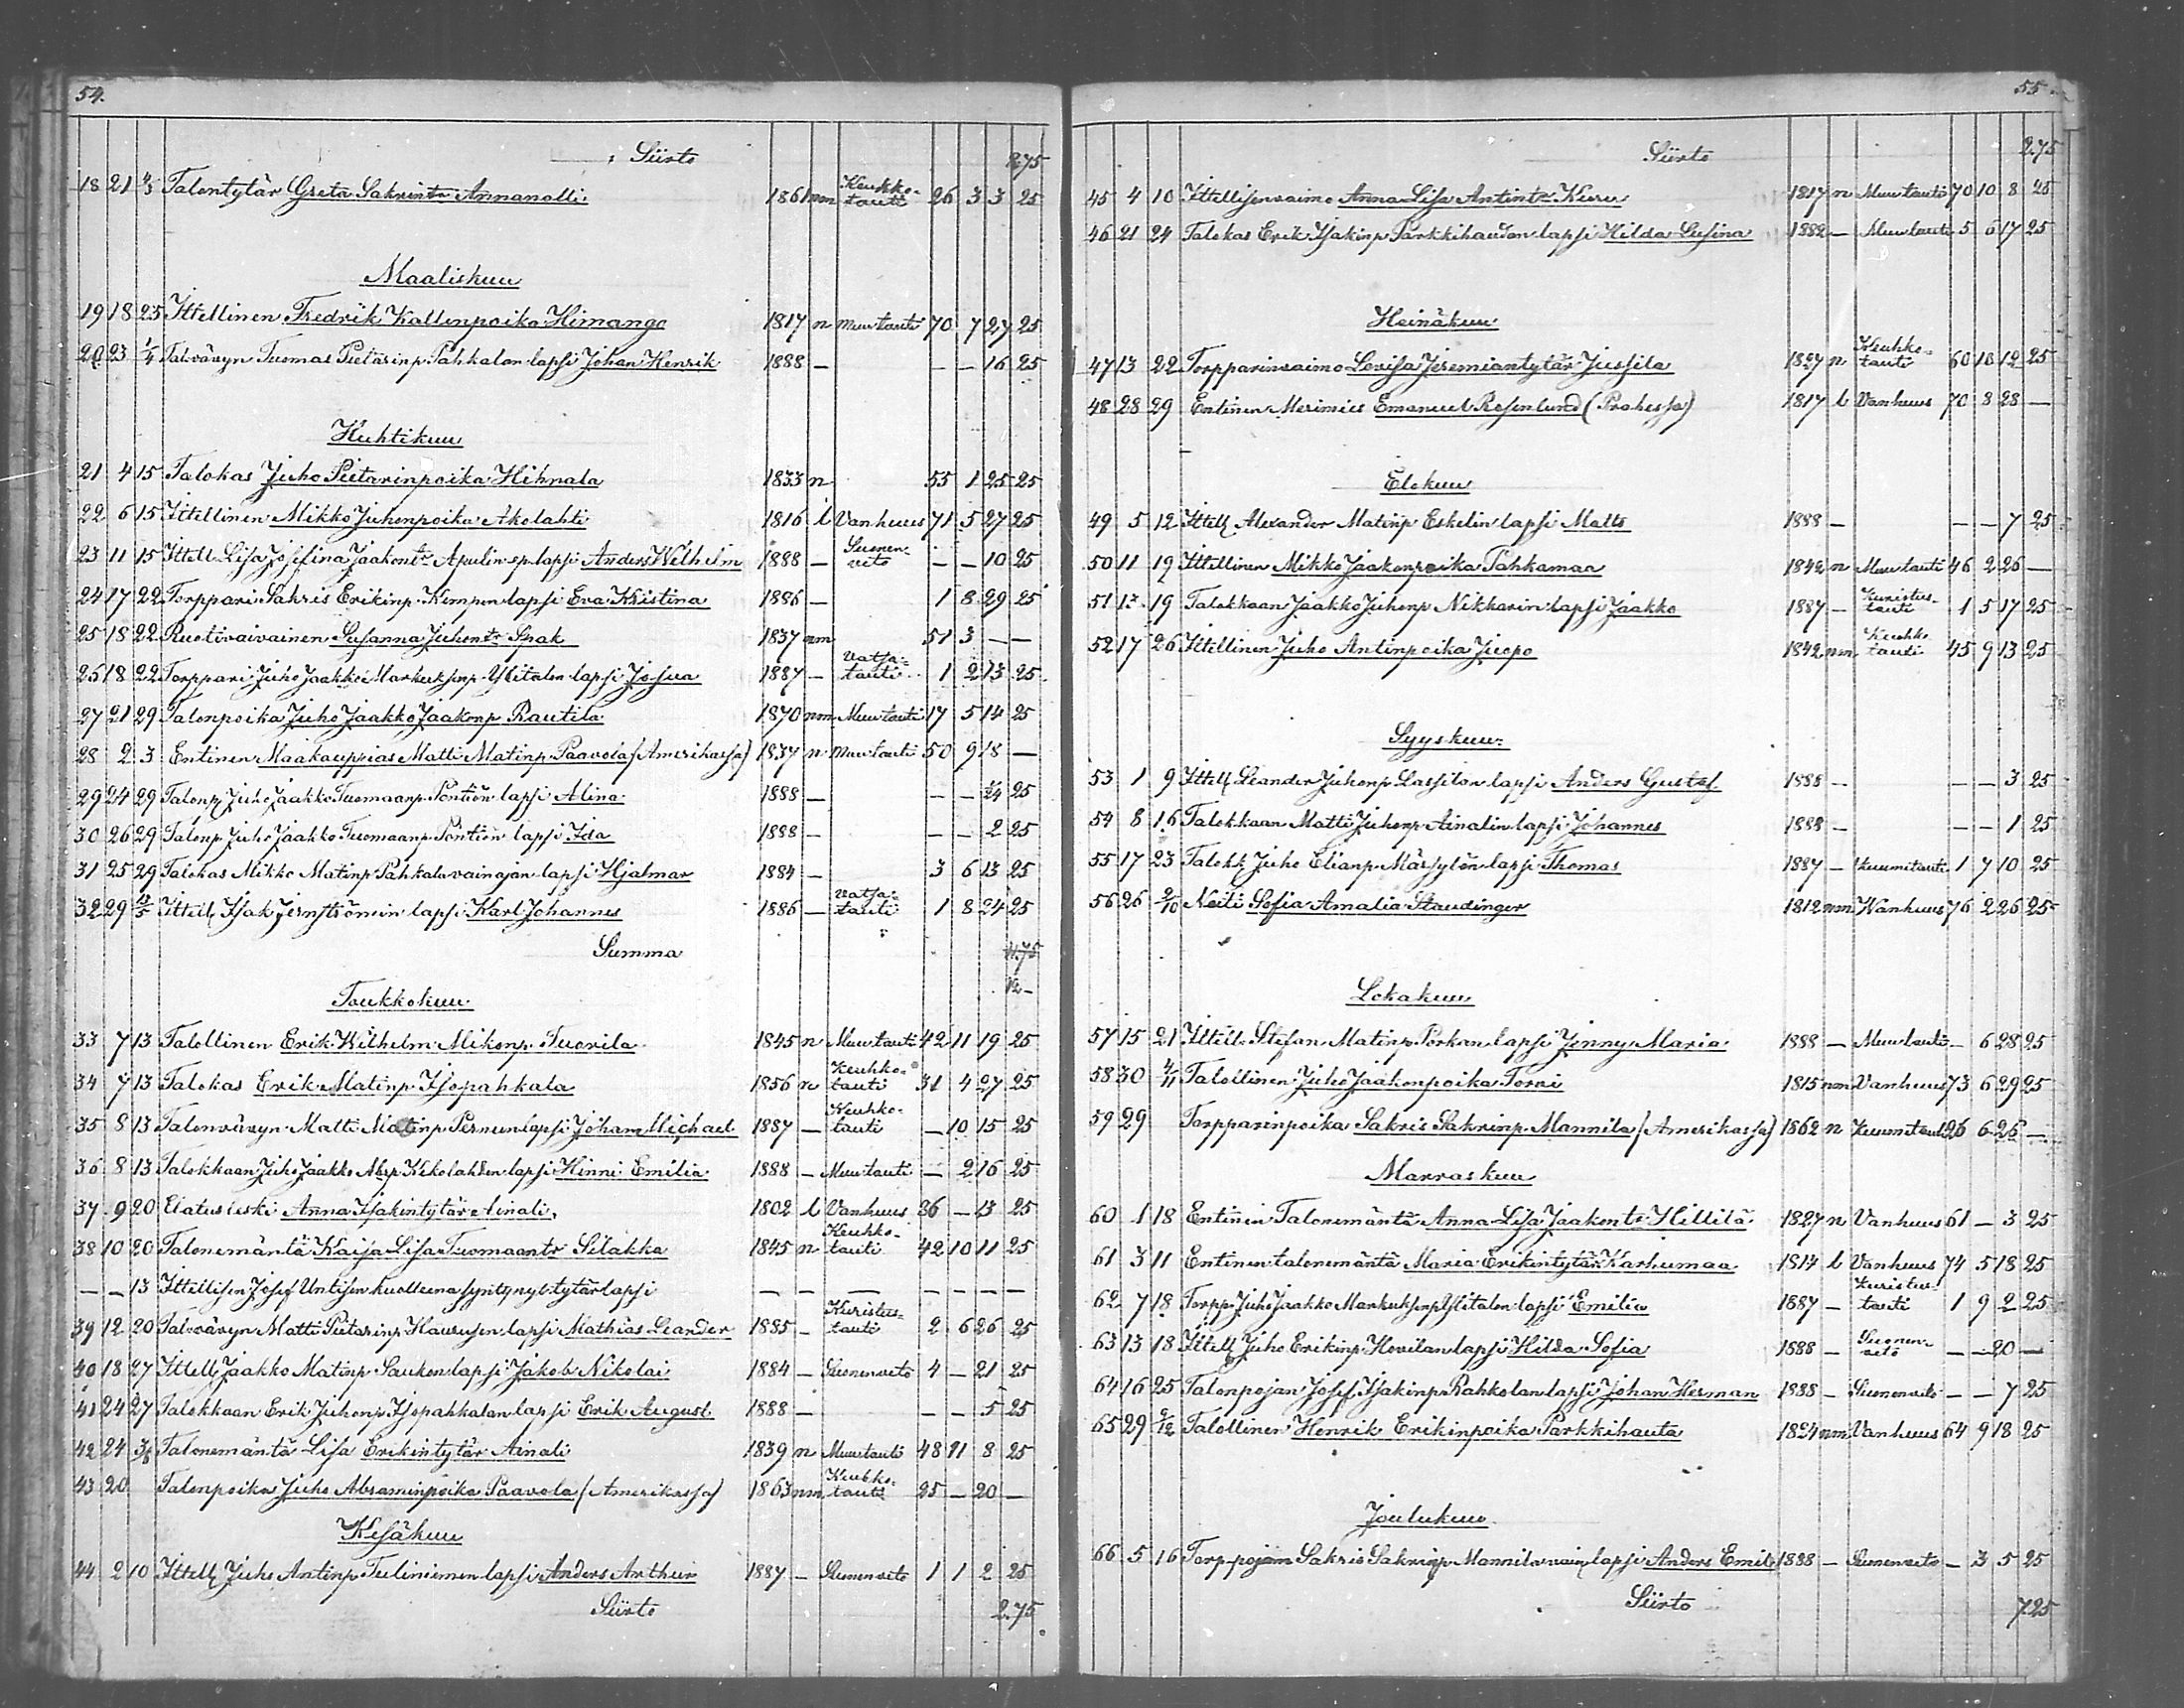 54.
Siirto 2.75
18 21 4/3 Talontytär Greta Sakrintr Annanolli 1861 nm Keuhko-tauti 26 3 3 25
Maaliskuu
19 18 25 Ittellinen Fredrik Kallenpoika Himango 1817 n Muu tauti 70 7 27 25
20 23 1/4 Tal.vävyn Tuomas Pietarinp Pahkalan lapsi Johan Henrik 1888 — — — 16 25
Huhtikuu
21 4 15 Talokas Juho Pietarinpoika Hihnala 1833 n 55 1 25 25
22 6 15 Ittellinen Mikko Juhonpoika Akolahti 1816 l Vanhuus 71 5 27 25
23 11 15 Ittell Lisa Josefina Jaakontr Apulin ap. lapsi Anders Wilhelm 1888 — Suonen-veto — — 10 25
24 17 22 Torppari Sakris Erikinp. Kempen lapsi Eva Kristina 1886 — 1 8 29 25
25 18 22 Ruotivaivainen Susanna Juhontr Spak 1837 nm 51 3 — —
26 18 22 Torppari Juho Jaakko Markuksenp. Ylitalon lapsi Josua 1887 — Vatsa-tauti 1 2 13 25
27 21 29 Talonpoika Juho Jaakko Jaakonp Rautila 1870 nm Muu tauti 17 5 14 25
28 2 3 Entinen Maakauppias Matti Matinp. Paavola (Amerikassa) 1837 n Muu tauti 50 9 18 —
29 24 29 Talonp Juho Jaakko Tuomaanp. Pöntiön lapsi Alina 1888 — — — 1/24 25
30 26 29 Talonp Juho Jaakko Tuomaanp. Pöntiön lapsi Ida 1888 — — — 2 25
31 25 29 Talokas Mikko Matinp Pahkala vainajan lapsi Hjalmar 1884 — 3 6 13 25
32 29 13/5 Ittell Isak Jernströmin lapsi Karl Johannes 1886 — Vatsa-tauti 1 8 24 25
Summa 11.75
12 —
Toukokuu
33 7 13 Talollinen Erik Wilhelm Mikonp. Tuorila 1845 n Muu tauti 42 11 19 25
34 7 13 Talokas Erik Matinp. Isopahkala 1856 n Keuhko-tauti 31 4 27 25
35 8 13 Talonvävyn Matti Matinp. Pernun lapsi Johan Michael 1887 — Keuhko-tauti — 10 15 25
36 8 13 Talokkaan Juho Jaakko Abrp. Kekolahden lapsi Hinni Emilia 1888 — Muu tauti — 2 16 25
37 9 20 Elatusleski Anna Isakintytär Ainali 1802 l Vanhuus 86 — 13 25
38 10 20 Talonemäntä Kaija Lisa Tuomaantr Silakka 1845 n Keuhko-tauti 42 10 11 25
— — 13 Ittellisen Josef Untisen kuolleena syntynyt tytärlapsi — — — — — — —
39 12 20 Tal.vävyn Matti Pietarinp. Haurusen lapsi Mathias Leander 1885 — Kuristus-tauti 2 6 26 25
40 18 27 Ittell Jaakko Matinp Saukon lapsi Jakob Nikolai 1884 — Suonenveto 4 — 21 25
41 24 27 Talokkaan Erik Juhonp Isopahkalan lapsi Erik August 1888 — — — 5 25
42 24 3/6 Talonemäntä Lisa Erikintytär Ainali 1839 n Muu tauti 48 11 8 25
43 20 Talonpoika Juho Abraminpoika Paavola (Amerikassa) 1863 nm Keuhko-tauti 25 — 20 —
Kesäkuu
44 2 10 Ittell Juho Antinp Tuliniemen lapsi Anders Arthur 1887 — Suonenveto 1 1 2 25
Siirto 2.75
55
Siirto 2.75
45 4 10 Ittellisenvaimo Anna Lisa Antintr Kuru 1817 n Muu tauti 70 10 8 25
46 21 24 Talokas Erik Isakinp Parkkihaudan lapsi Hilda Susina 1882 — Muu tauti 5 6 17 25
Heinäkuu
47 13 22 Torpparinvaimo Lovisa Jeremiantytär Jussila 1827 n Keuhko-tauti 60 10 12 25
48 28 29 Entinen Merimies Emanuel Rosenlund (Prahassa) 1817 l Vanhuus 70 8 28 —
Elokuu
49 5 12 Ittell Alexander Matinp Eskelin lapsi Matts 1888 — — — 7 25
50 11 19 Ittellinen Mikko Jaakonpoika Pahkamaa 1842 n Muu tauti 46 2 26 —
51 17 19 Talokkaan Jaakko Juhonp Nikkarin lapsi Jaakko 1887 — Kuristus-tauti 1 5 17 25
52 17 26 Ittellinen Juho Antinpoika Juopo 1842 nm Keuhko-tauti 45 9 13 25
Syyskuu
53 1 9 Ittell Leander Juhonp Lassilan lapsi Anders Gustaf 1888 — — — 3 25
54 8 16 Talokkaan Matti Juhonp Ainalin lapsi Johannes 1888 — — — 1 25
55 17 23 Talokk Juho Elianp. Märsylön lapsi Thomas 1887 — Kuumetauti 1 7 10 25
56 26 2/10 Neiti Sofia Amalia Staudinger 1812 nm Wanhuus 76 2 26 25
Lokakuu
57 15 21 Ittell Stefan Matinp Porkan lapsi Jenny Maria 1888 — Muu tauti — 6 28 25
58 30 4/11 Talollinen Juho Jaakonpoika Torni 1815 nm Vanhuus 73 6 29 25
59 29 Torpparinpoika Sakris Sakrinp. Mannila (Amerikassa) 1862 n Kuumetauti 26 6 26 —
Marraskuu
60 1 18 Entinen Talonemäntä Anna Lisa Jaakontr Hillilä 1827 n Vanhuus 61 — 3 25
61 3 11 Entinen talonemäntä Maria Erikintytär Karhumaa 1814 l Vanhuus 74 5 18 25
62 7 18 Torpp Juho Jaakko Markuksenp Ylitalon lapsi Emilia 1887 — Kuristus-tauti 1 9 2 25
63 13 18 Ittell Juho Erikinp Hovilan lapsi Hilda Sofia 1888 — Suonen-veto — — 20 —
64 16 25 Talonpojan Josef Isakinp Rahkolan lapsi Johan Herman 1888 — Suonenveto — — 7 25
65 29 2/12 Talollinen Henrik Erikinpoika Parkkihauta 1824 nm Vanhuus 64 9 18 25
Joulukuu
66 5 16 Torp-pojan Sakris Sakrinp Mannila vain. lapsi Anders Emil 1888 — Suonenveto — 3 5 25
Siirto 7.25